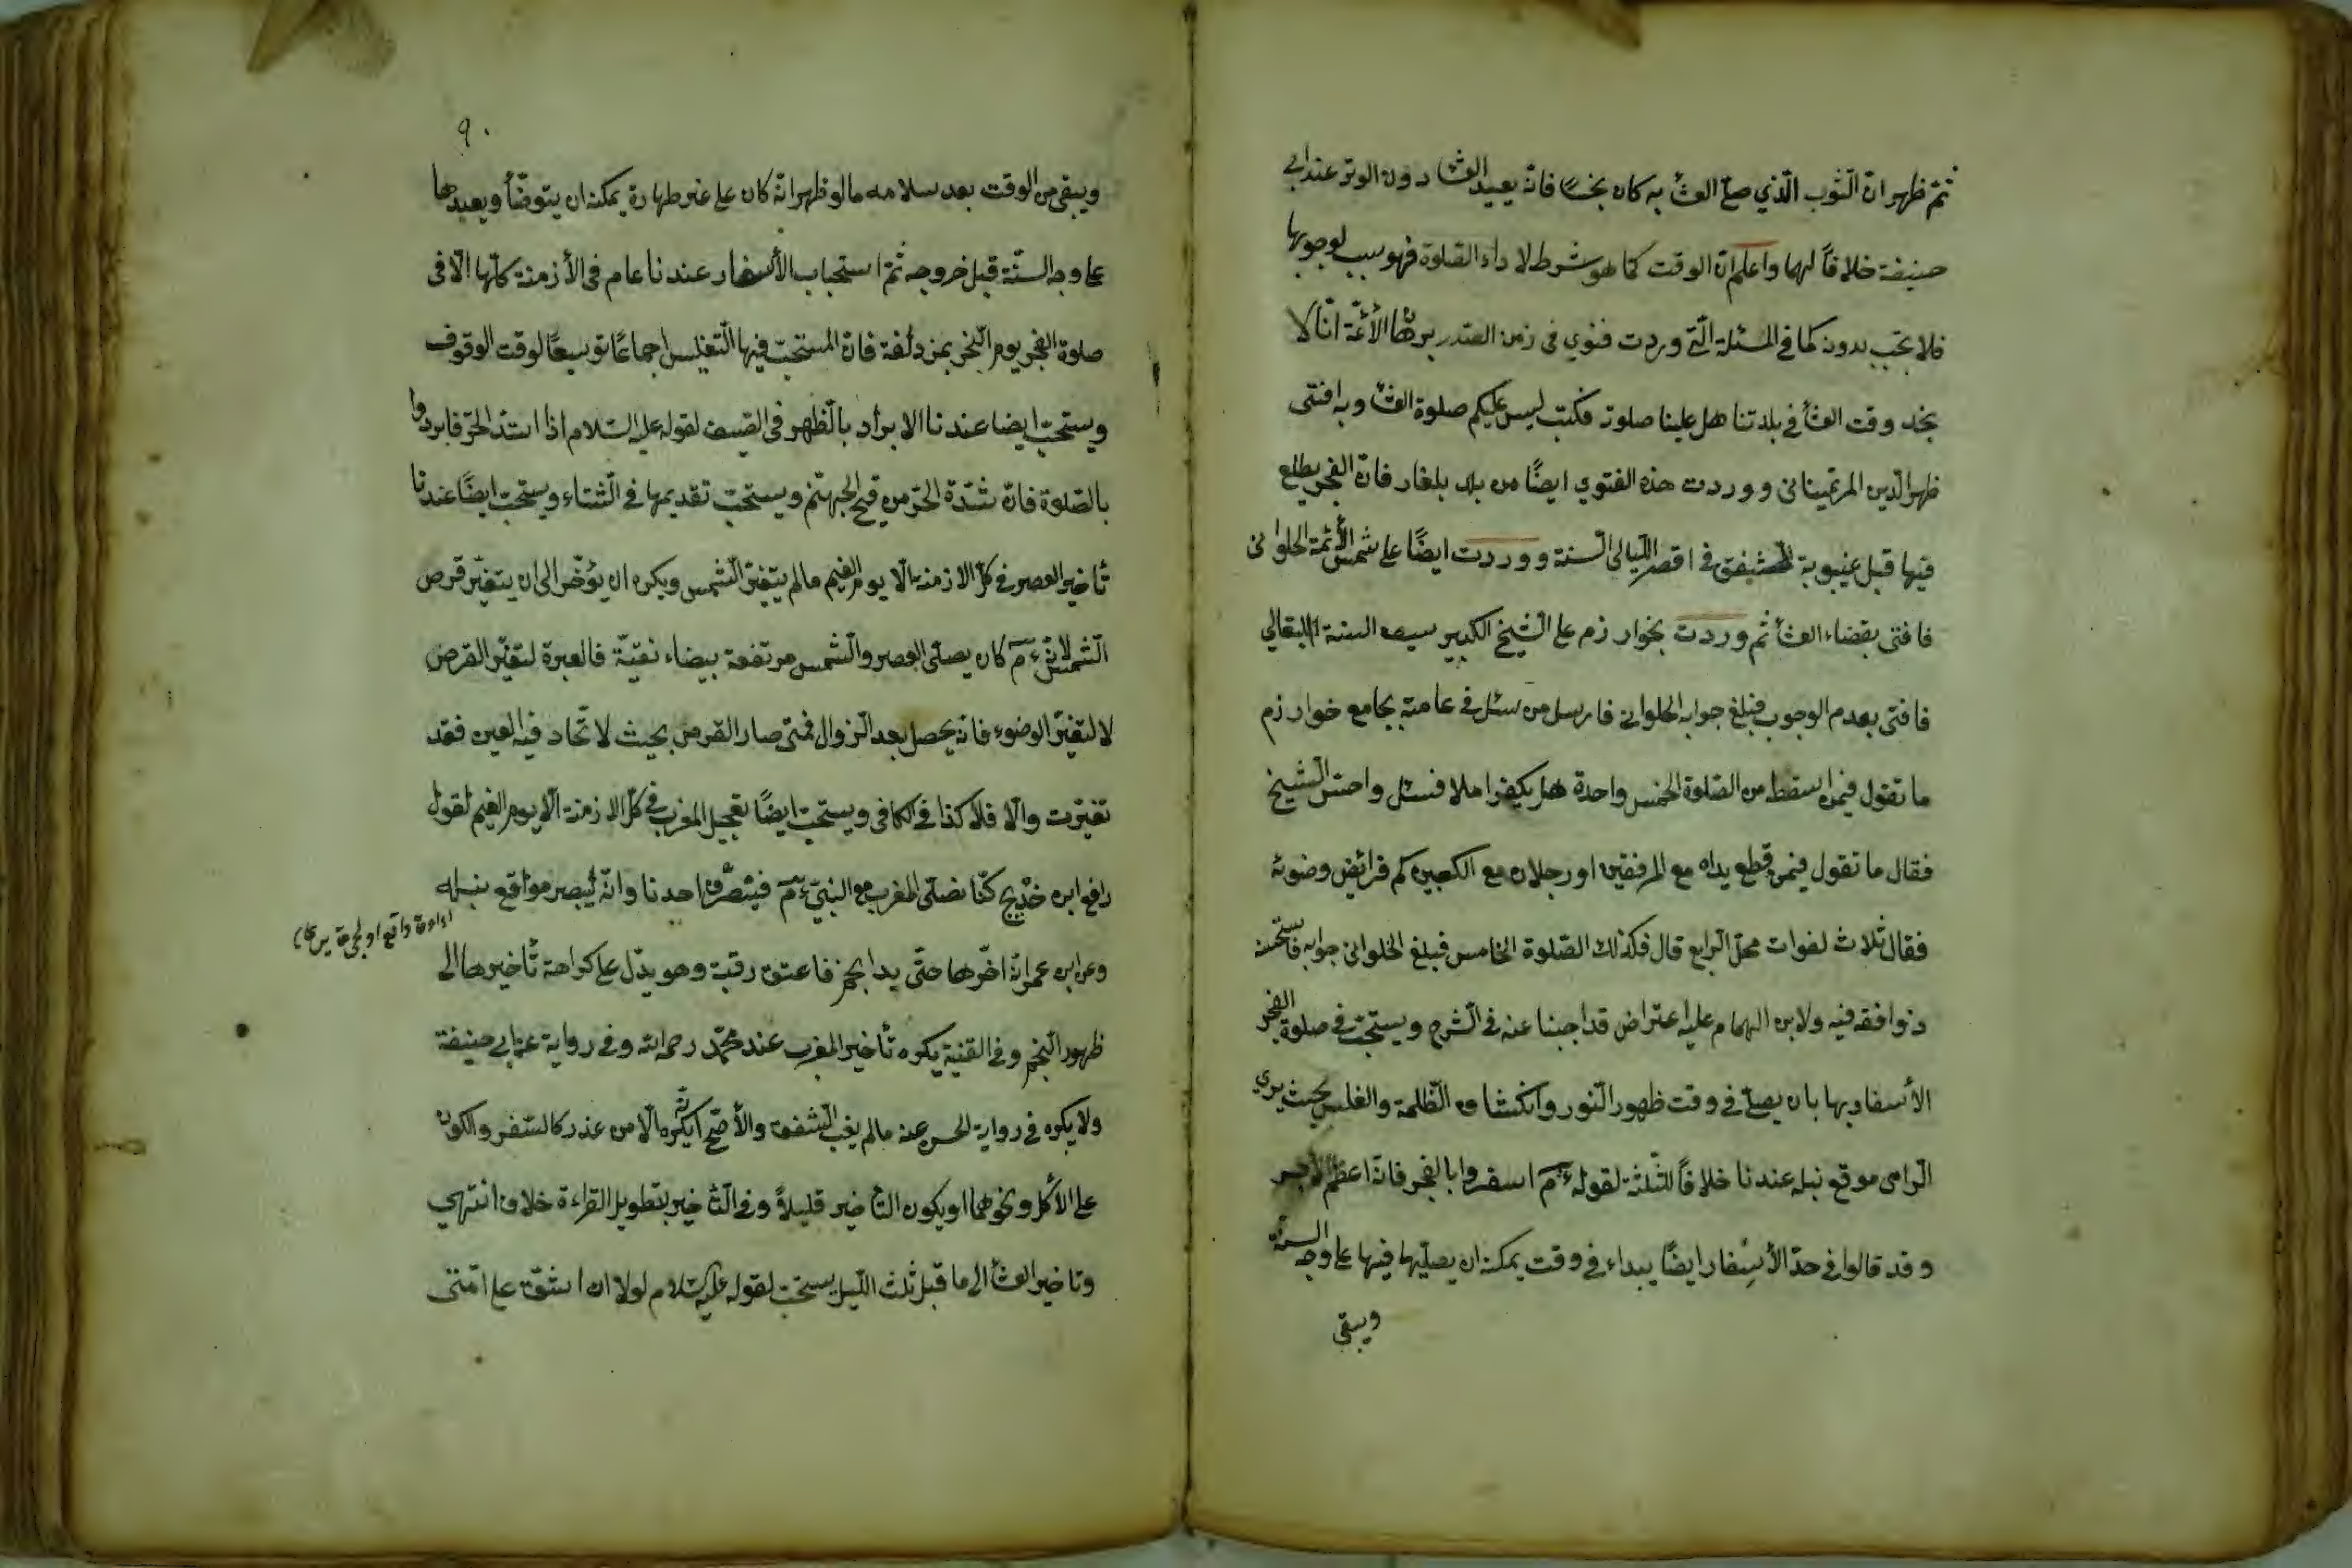 ثمّ ظهر انّ الثّوب الّذي صلّى العشأ به كان نجسًا فانّه يعيد العشا دون الوتر عند ابي
حنيفة خلافاً لهما واعلم انّ الوقت كما هو شرط لاداء الصّلوة فهو سبب لوجوبها
فلا تجب بدونه كما في المسئلة الّتي وردت فتوي فى زمن الصّدر برهان الأئمّة انّا لا
نجد وقت العشأ في بلدتنا هل علينا صلوته فكتب ليس عليكم صلوة العشا وبه افتى
ظهير الدّين المرغيناني ووردت هذه الفتوي ايضًا من بلد بلغار فانّ الفجر يطلع
فيها قبل غيبوبة الشفق في اقصر اللّيالى السّنة ووردت ايضًا على شمس الأئمّة الحلوانى
فافتى بقضاء العشأ ثم وردت بخوارزم على الشّيخ الكبير سيف السنة البقالي
فافتى بعدم الوجوب فبلغ جوابه الحلوانى فارسل من سئل في عامته بجامع خوارزم
ما تقول فيمن اسقط من الصّلوة الخمس واحدة هل يكفر ام لا فسئل واحسّ الشّيخ
فقال ما تقول فيمن قطع يداه مع المرفقين او رجلان مع الكعبين كم فرائض وضوئه
فقال ثلاث لفوات محلّ الرّابع قال فكذلك الصّلوة الخامس فبلغ الحلوانى جوابه فاستحسنه
ووافقه فيه ولابن الهمام عليه اعتراض قد اجبنا عنه في الشّرح ويستحبّ في صلوة الفجر
الأسفار بها بان يصلّى في وقت ظهور النّور وانكشاف الظّلمة والغلس بحيث يري
الرّامى موقع نبله عندنا خلافاً للثّلثة لقوله ءم اسفروا بالفجر فانّه اعظم للأجر
وقد قالوا في حدّ الأسفار ايضًا يبداء في وقت يمكنه ان يصلّيها فيها على وجه السنّة
ويبقى
٩٠
ويبقى من الوقت بعد سلامه ما لو ظهر انّه كان على غير طهارة يمكنه ان يتوضّأ ويعيدها
على وجه السنّة قبل خروجه ثمّ استحباب الأسفار عندنا عام فى الأزمنة كلّها الّا فى
صلوة الفجر يوم النّحر بمزدلفة فانّ المستحبّ فيها التّغليس اجماعًا توسيعًا لوقت الوقوف
ويستحبّ ايضا عندنا الابراد بالظّهر فى الصّيف لقوله عليه السّلام اذا اشتدّ الحرّ فابردوا
بالصّلوة فانّ شدّة الحرّ من قيح الجهنّم ويستحبّ تقديمها في الشّتاء ويستحبّ ايضًا عندنا
تأخير العصر في كلّ الازمنة الّا يوم الغيم مالم يتغيّر الشّمس ويكره ان يؤخّر الى ان يتغيّر قرص
الشّمس لانّه ءم كان يصلّى العصر والشّمس مرتفعة بيضاء نقيّة فالعبرة لتغيّر القرص
لا لتغيّر الوضوء فانّه يحصل بعد الزّوال فمتى صار القرص بحيث لا تحاد فيه العين فقد
تغيّرت والّا فلا كذا في الكافى ويستحبّ ايضًا تعجيل المغرب في كلّ الازمنة الّا يوم الغيم لقول
رافع ابن خديج كنّا نصلّى المغرب مع النبيّ ءم فينصرف احدنا وانّه ليبصر مواقع نبله
وعن ابن عمر انّه اخّرها حتّى بدا نجم فاعتق رقبة وهو يدّل على كراهة تأخيرها الى
ظهور النّجم وفي القنية يكره تأخير المغرب عند محمّد رحمه الله وفي رواية عن ابي حنيفة
ولا يكره في رواية الحسن عنه مالم يغب الشّفق والأصحّ انّه يكره الّا من عذر كالسّفر والكون
على الأكل ونحوهما او يكون التأخير قليلاً وفي التّأخير بتطويل القراءة خلاف انتهي
وتاخير العشأ الى ما قبل ثلث اللّيل يستحبّ لقوله عليه السّلام لولا ان اشقّ على امّتى